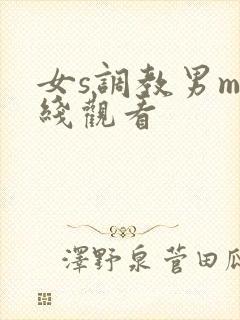 女s調教男m
綫觀看
澤野泉菅田瓜